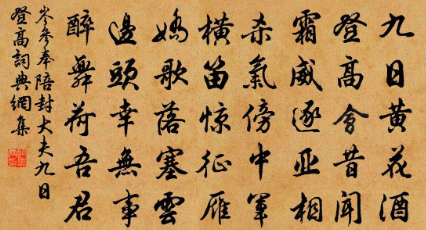 九日黄花酒
登高會昔聞
霜威逐亚相
杀氣傍中軍
横笛惊征雁
娇歌落塞雲
邊頭幸無事
醉舞荷吾君
岑參奉陪封大夫九日
登高詞典網集